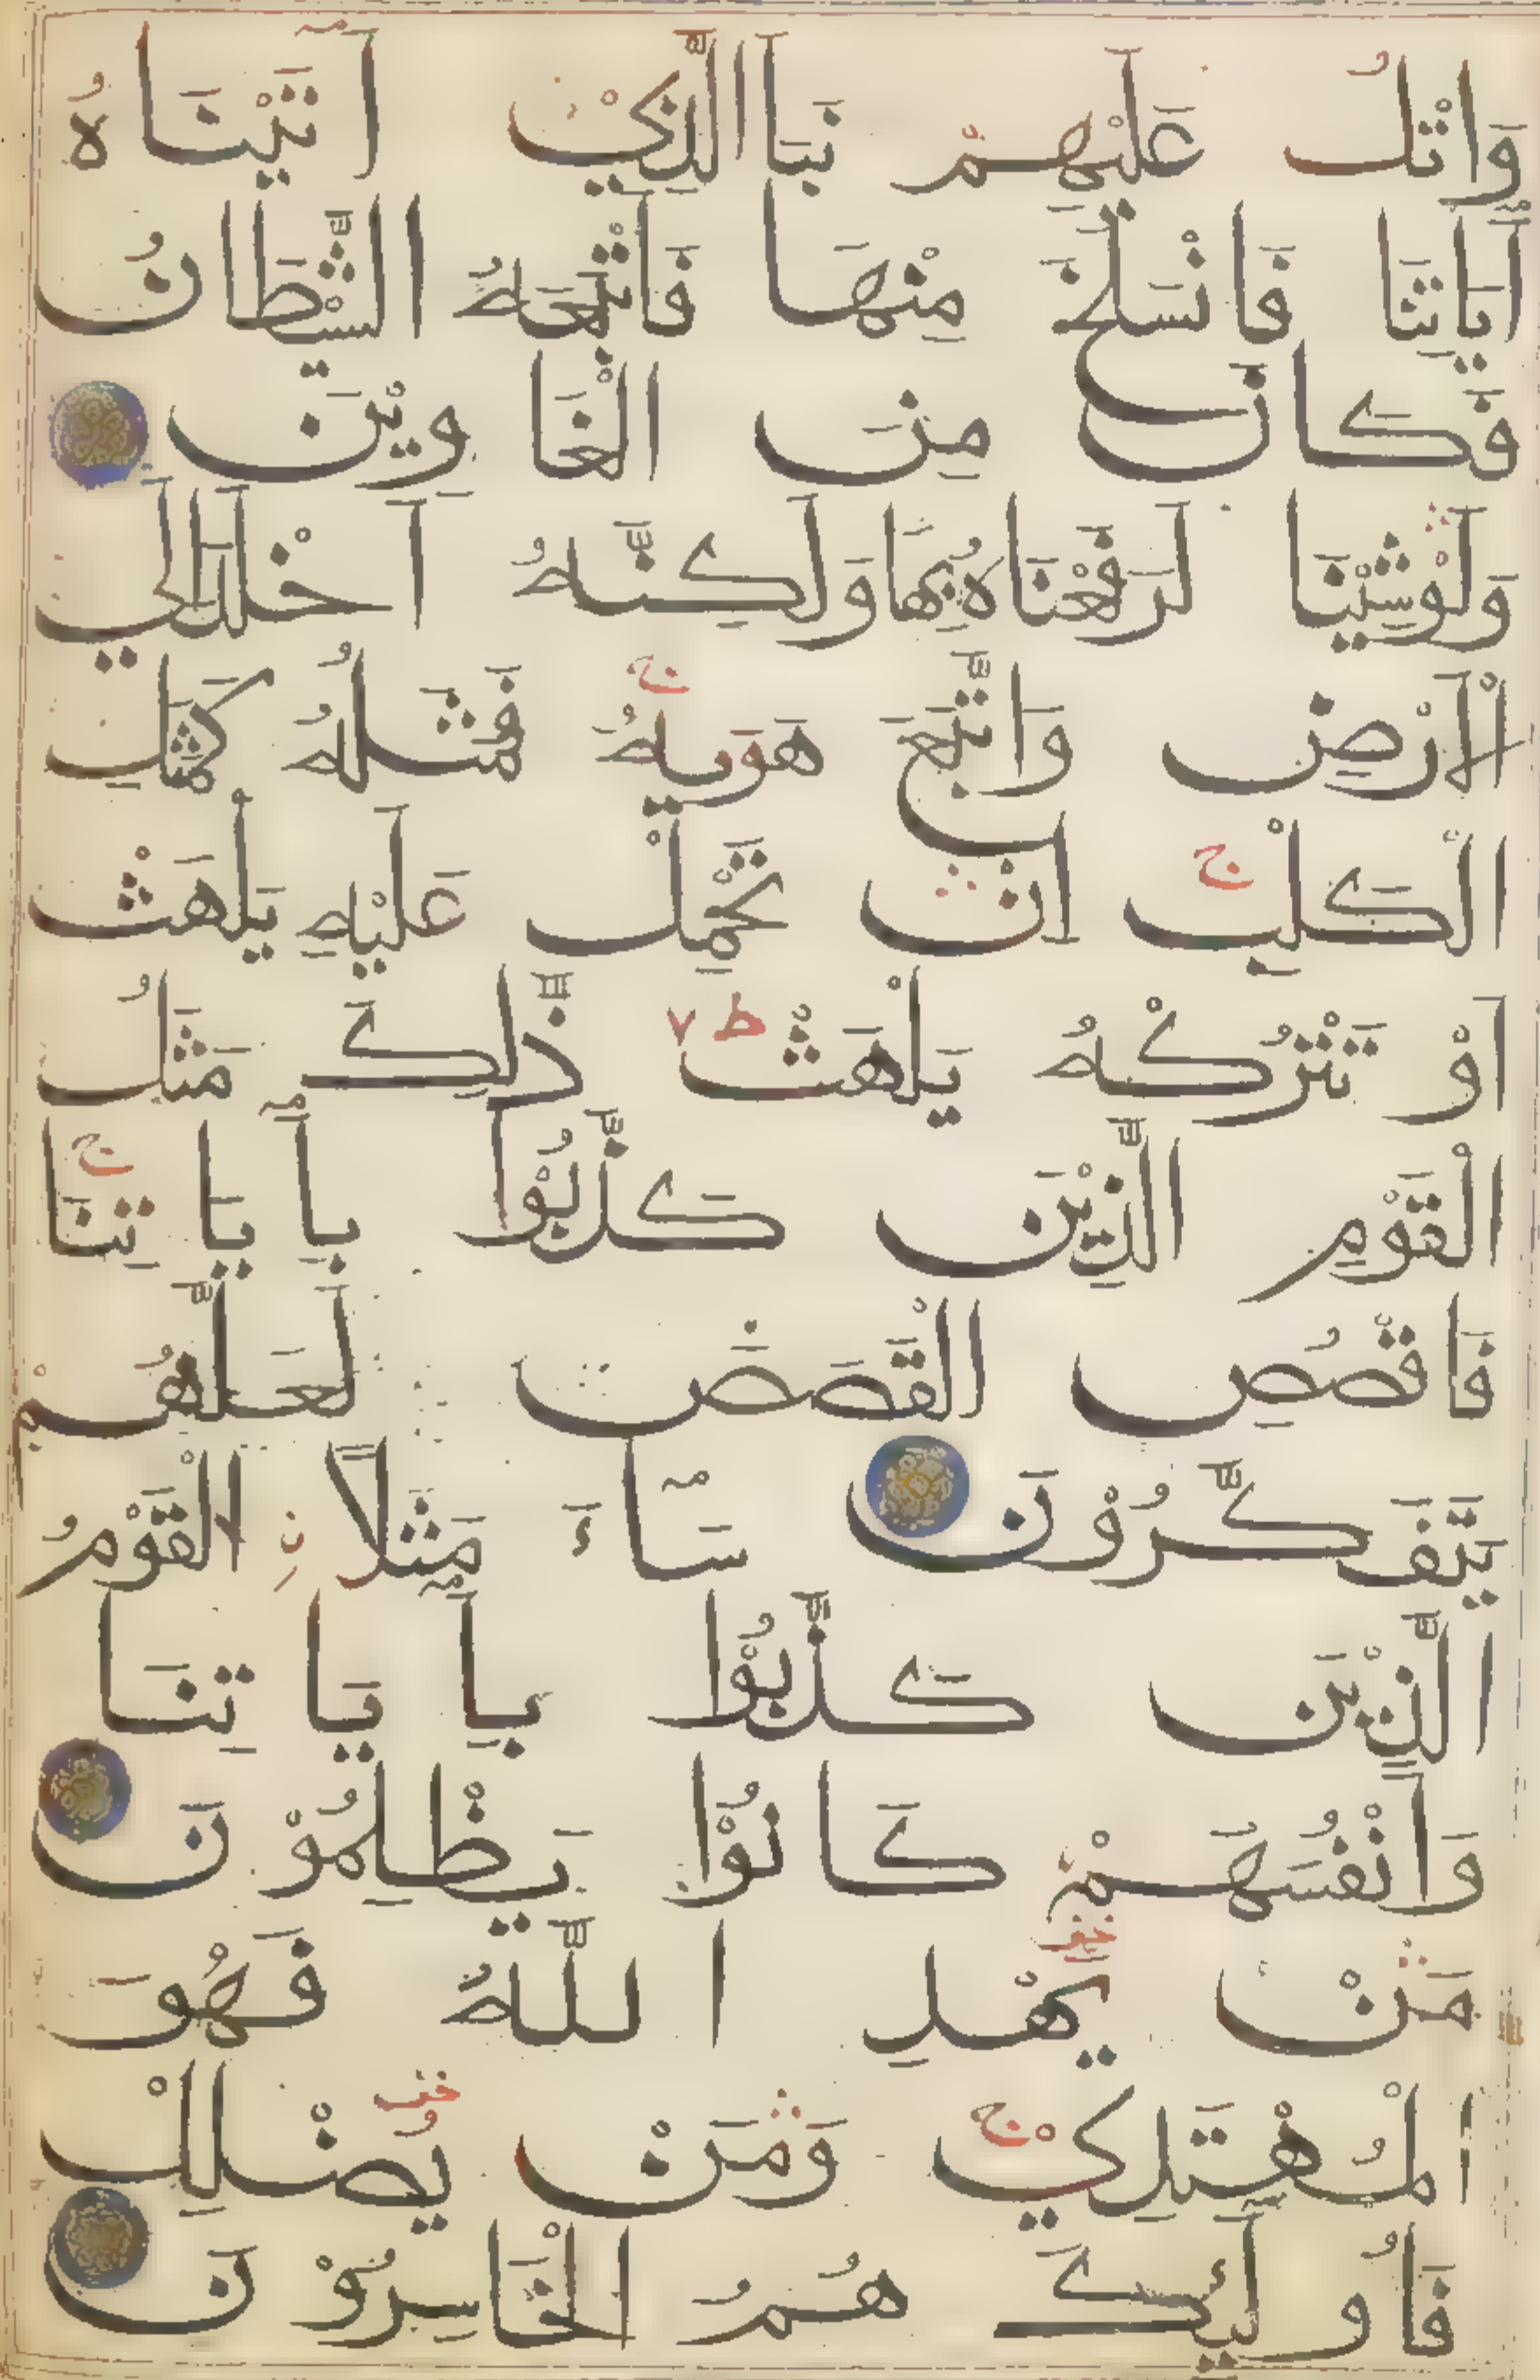 وَاتْلُ عَلَيْهِمْ نَبَاَ الَّذِيْ آتَيْنَاهُ
اٰيَاتِنَا فَانْسَلَخَ مِنْهَا فَاَتْبَعَهُ الشَّيْطَانُ
فَكَانَ مِنَ الْغَاوِيْنَ
وَلَوْ شِئْنَا لَرَفَعْنَاهُ بِهَا وَلَكِنَّهُ اَخْلَدَ اِلَي
الْاَرْضِ وَاتَّبَعَ هَوَيهُ فَمَثَلُهُ كَمَثَلِ
الْكَلْبِ اِنْ تَحْمِلْ عَلَيْهِ يَلْهَثْ
اَوْ تَتْرُكْهُ يَلْهَثْ ذَّلِكَ مَثَلُ
الْقَوْمِ الَّذِيْنَ كَذَّبُوْا بِآيَاتِنَا
فَاقْصُصِ الْقَصَصَ لَعَلَّهُمْ
يَتَفَكَّرُوْنَ سَآءَ مَثَلًا الْقَوْمُ
الَّذِيْنَ كَذَّبُوْا بِآيَاتِنَا
وَاَنْفُسَهُمْ كَانُوْا يَظْلِمُوْنَ
مَنْ يَهْدِ اللَّهُ فَهُوَ
الْمُهْتَدِيْ وَمَنْ يُضْلِلْ
فَاُولَٓئِكَ هُمُ الْخَاسِرُوْنَ